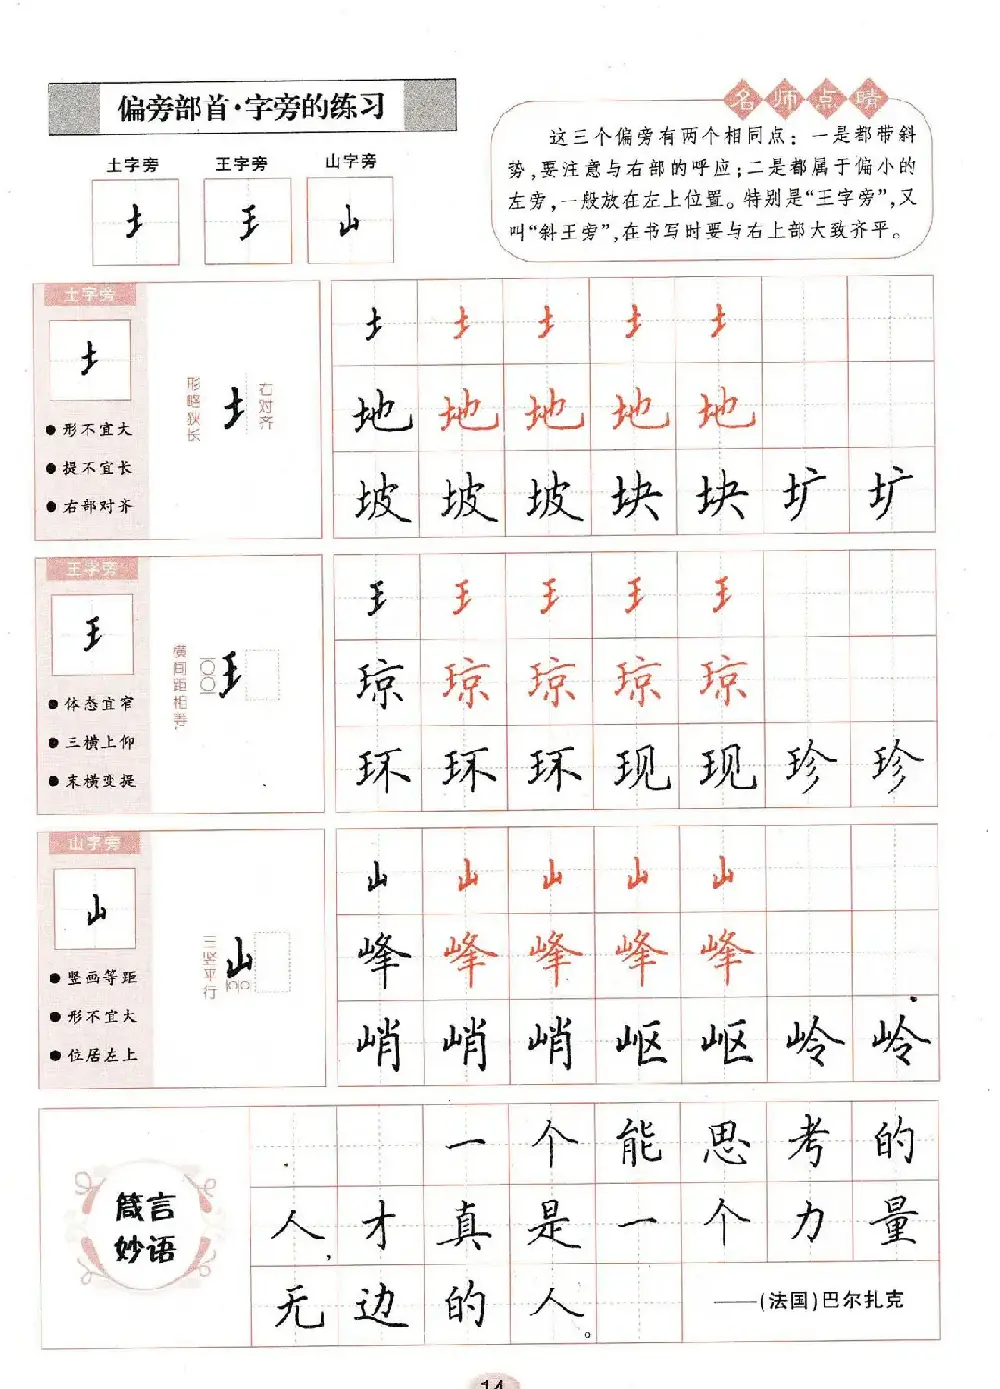 偏旁部首·字旁的练习
名师点睛
这三个偏旁有两个相同点：一是都带斜
势,要注意与右部的呼应;二是都属于偏小的
左旁,一般放在左上位置。特别是“王字旁”,又
叫“斜王旁”,在书写时要与右上部大致齐平。
土字旁 王字旁 山字旁
土 王 山
土字旁
土
形不宜大
提不宜长
右部对齐
形略狭长
土
右对齐
土 土 土 土 土
地 地 地 地 地
坡 坡 坡 块 块 圹 圹
王字旁
王
体态宜窄
三横上仰
末横变提
横间距相等
王
王 王 王 王 王
琼 琼 琼 琼 琼
环 环 环 现 现 珍 珍
山字旁
山
竖画等距
形不宜大
位居左上
三竖平行
山
山 山 山 山 山
峰 峰 峰 峰 峰
峭 峭 峭 岖 岖 岭 岭
箴言
妙语
一个能思考的
人,才真是一个力量
无边的人。
——(法国)巴尔扎克
14